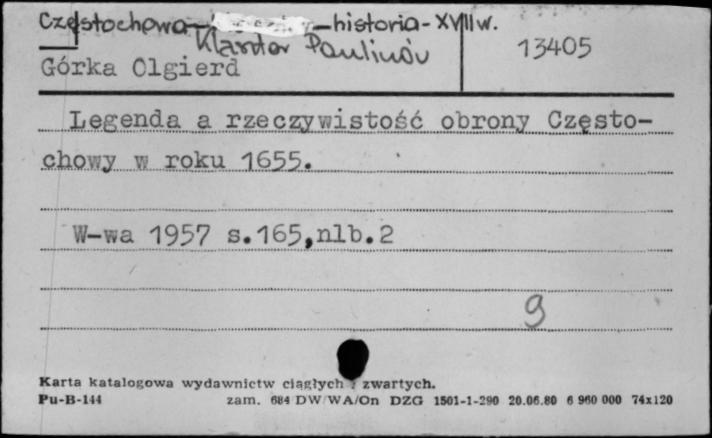 Częstochowa – historia - XVII w.
Klasztor Paulinów
13405
Górka Olgierd
Legenda a rzeczywistość obrony Często-
chowy w roku 1655.
W-wa 1957 s.165,nlb.2
9
Karta katalogowa wydawnictw ciągłych i zwartych.
Pu-B-144 zam. 684 DW WA/On DZG 1501-1-290 20.06.80 6 960 000 74x120